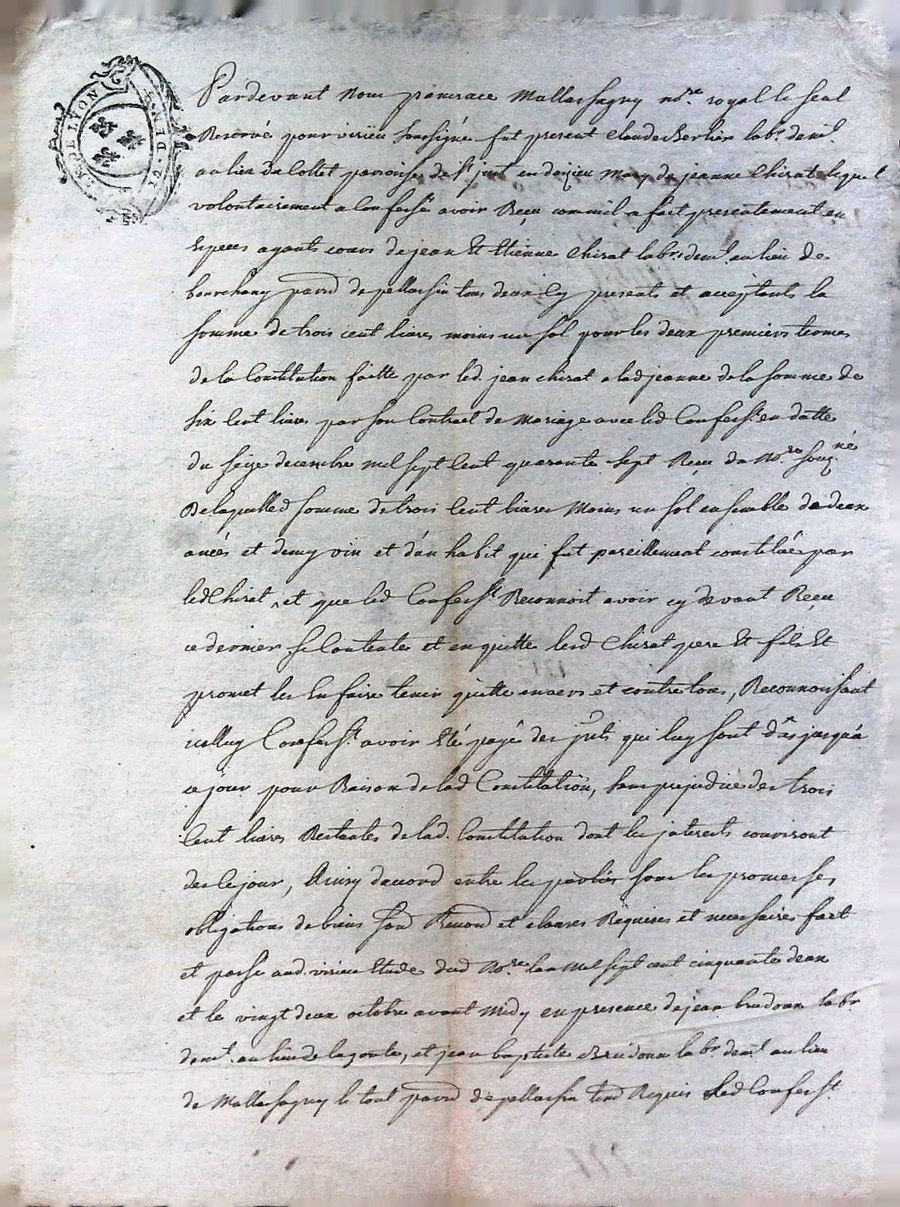 GNL. LYON DE M.T ID.
Pardevant Nous pancrace Mallassagny no.re royal le seul
Reservé pour virieu soussigné fut present claude Berlier lab.r dem.t
au lieu du Collet parroisse de s.t just en doizieu mary de jeanne Chirat lequel
volontairement a Confessé avoir Reçu comme il a fait presentement en
Especes ayants cours de jean Et Etienne Chirat lab.rs dem.t au lieu de
bourchany parr.d de pellassin tous deux Cy presents et acceptants la
somme de trois cent livres moins un sol pour les deux premiers termes
de la Constitution faitte par led. jean chirat a lad jeanne de la somme de
six Cent livres par son Contract de Mariage avec led Confess.t en datte
du seize decembre mil sept Cent quarante sept Reçu du No.re sousig.né
De laquelle d somme de trois Cent livres Moins un sol ensemble de deux
anées et demy vin et d'un habit qui fut pareillement constitué par
led Chirat, et que led Confess.t Reconnoit avoir cy devant Reçu
ce dernier se Contente et en quitte lesd Chirat pere Et fils Et
promet les En faire tenir quitte envers et contre tous, Reconnoissant
icelluy Confess.t avoir Eté payé des jnts qui luy sont dûs jusqu'a
ce jour pour Raison de lad Constitution, sans prejudice des trois
Cent livres Restantes de lad. Constitution dont les jnterests couriront
des Ce jour, Ainsy d'accord entre les parties sous les promesses
obligations de biens Soud Renond et clauses Requises et necessaires fait
et passé aud. virieu Etude dud No.re l'an Mil sept cent cinquante deux
et le vingt deux octobre avant Midy en presence de jean bridoux lab.r
dem.t au lieu de la goute, et jean baptiste Bridoux lab.r dem.t au lieu
de Mallassagny le tout parr.d de pellassin temd Requis Led Confess.t